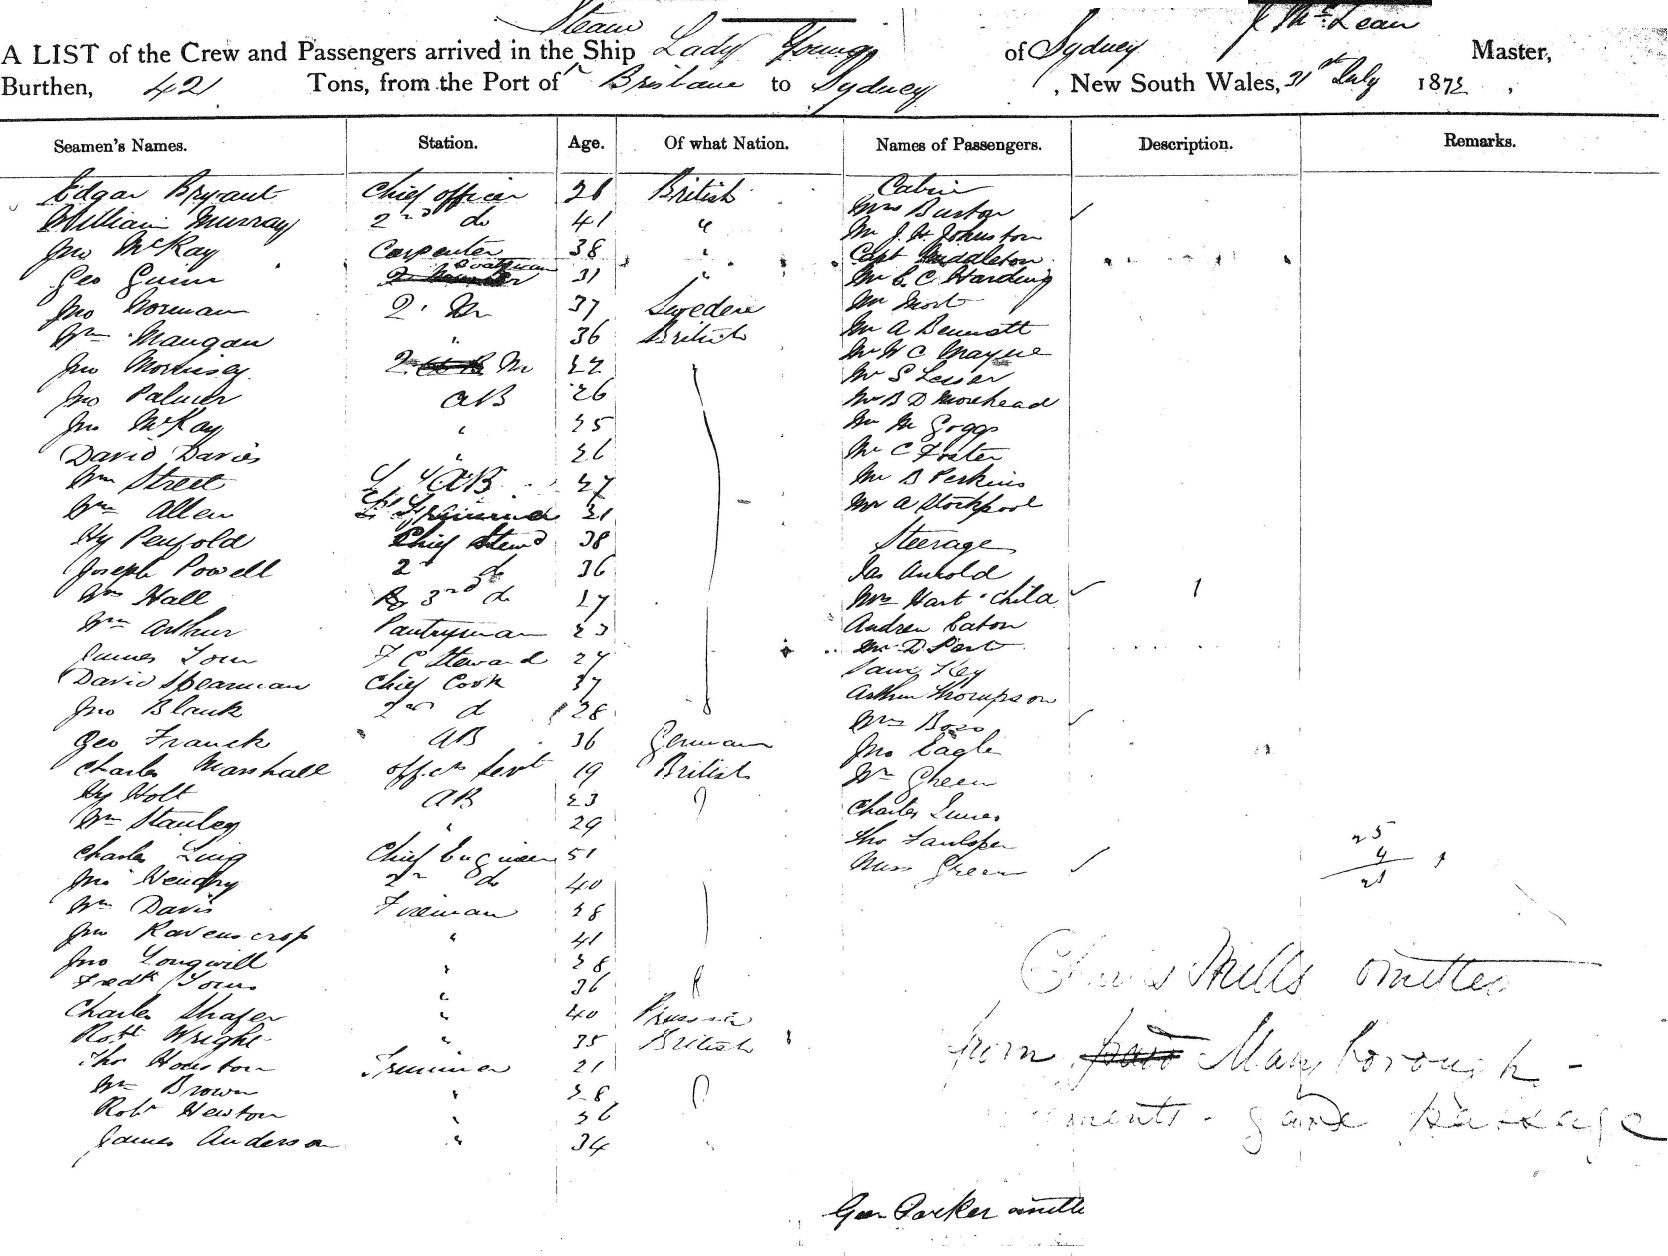 Steam J McLean
A LIST of the Crew and Passengers arrived in the Ship Lady Young of Sydney Master,
Burthen, 421 Tons, from the Port of Brisbane to Sydney, New South Wales, 31st July 187
Seamen's Names. Station. Age. Of what Nation. Names of Passengers. Description. Remarks.
Edgar Bryant Chief officer 28 British Cabin
William Murray 2nd do 41 " Mrs Burton
Jno McKay Carpenter 38 " Mr J. H. Johnston
Capt Middleton
Geo Gunn 31 " Mr C. C. Harding
Jno Norman 2. Mr 37 Sweden Mr Mort
Wm Mangan " 36 British Mr A Bennett
Mr W C Mayne
Jno Morrisey 2 Mr 22 Mr S Lesser
Jno Palmer AB 26 Mr B D Morehead
Jno McKay " 25 Mr M Goggs
David Davies " 26 Mr C Foster
Wm Street AB 27 Mr B Perkins
Wm Allen 21 Mr A Stockpool
Hy Penfold Chief Stewd 38 Steerage
Joseph Powell 2d do 36 Jas Arnold
Wm Hall 3rd do 27 Mrs Hart & child
Wm Arthur Pantryman 23 Andrew Eaton
James F C Steward 27 Mr D Port
Sam Key
David Spearman Chief Cook 37 Arthur Thompson
Jno Blank 2nd d 28 Mrs Boss
Geo Franck AB 36 German Jno Eagle
Charles Marshall officers Servt 19 British Wm Green
Hy Holt AB 23
Wm Stanley " 29 Charles Innes
Charles Chief Engineer 51 Tho
Jno Hendry 2nd do 40 Miss Green
25
4
21
Wm Davis Fireman 28
Jno Ravenscrop " 41
Jno Longwill " 28
Fredk " 36
Charles Shafer " 40 Prussia
Robt Wright " 35 British
Tho Houston Trimmer 21
Wm Brown " 28
Robt Newton " 26
James Anderson " 34
Mills omitted
from Maryborough -
passage
Geo Parker omitte